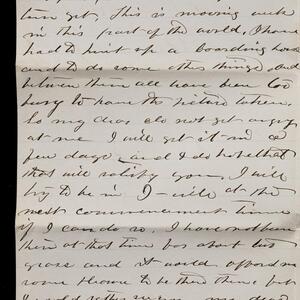 turn yet. This is moving week
in this part of the world, I have
had to hunt up a boarding house
and to do some other things, and
between them all have been too
busy to have the picture taken.
So my dear do not get angry
at me I will get it in a
few days and I do hope that
that will satisfy you. I will
try to be in I-ville at the
next commencement time
if I can do so. I have not been
there at that time for about two
years and it would afford me
some pleasure to be there then, but